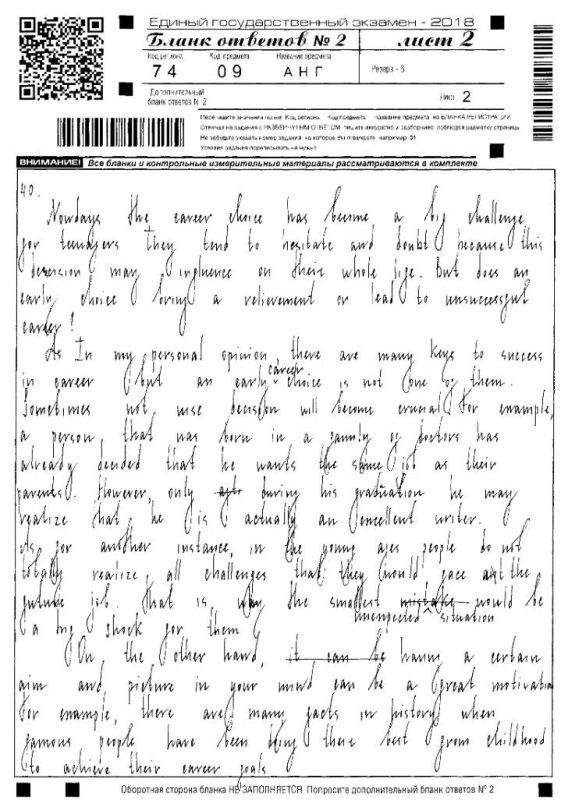 Единый государственный экзамен - 2018
Бланк ответов № 2 лист 2
Код региона Код предмета Название предмета
74 09 АНГ Резерв - 6
Дополнительный
бланк ответов № 2 Лист 2
Перепишите значения полей Код региона Код предмета Название предмета из БЛАНКА РЕГИСТРАЦИИ
Отвечая на задания с РАЗВЕРНУТЫМ ОТВЕТОМ пишите аккуратно и разборчиво соблюдая разметку страницы
Не забудьте указать номер задания на которое Вы отвечаете например 31
Условия задания переписывать не нужно
ВНИМАНИЕ! Все бланки и контрольные измерительные материалы рассматриваются в комплекте
40.
Nowdays the career choice has become a big challenge
for teenagers They tend to hesitate and doubt because this
desersion may influence on their whole life. But does an
early choice bring a relievement or lead to unsuccessful
career?
As In my personal opinion there are many keys to success
in career but an early career choice is not one of them.
Sometimes not wise decision will become crucial For example,
a person, that was born in a family of doctors has
already decided that he wants the same job as their
parents. However, only during his graduation he may
realize that he is actually an excellent writer.
As for another instance, in the young ages people do not
totally realize all challenges that they would face at the
future job. That is why the smallest mistake would be
unexpected situation
a big shock for them
On the other hand, it can be having a certain
aim and picture in your mind can be a great motivation
For example, there are many facts in history when
famous people have been doing there best from childhood
to achieve their career goals
Оборотная сторона бланка НЕ ЗАПОЛНЯЕТСЯ. Попросите дополнительный бланк ответов № 2